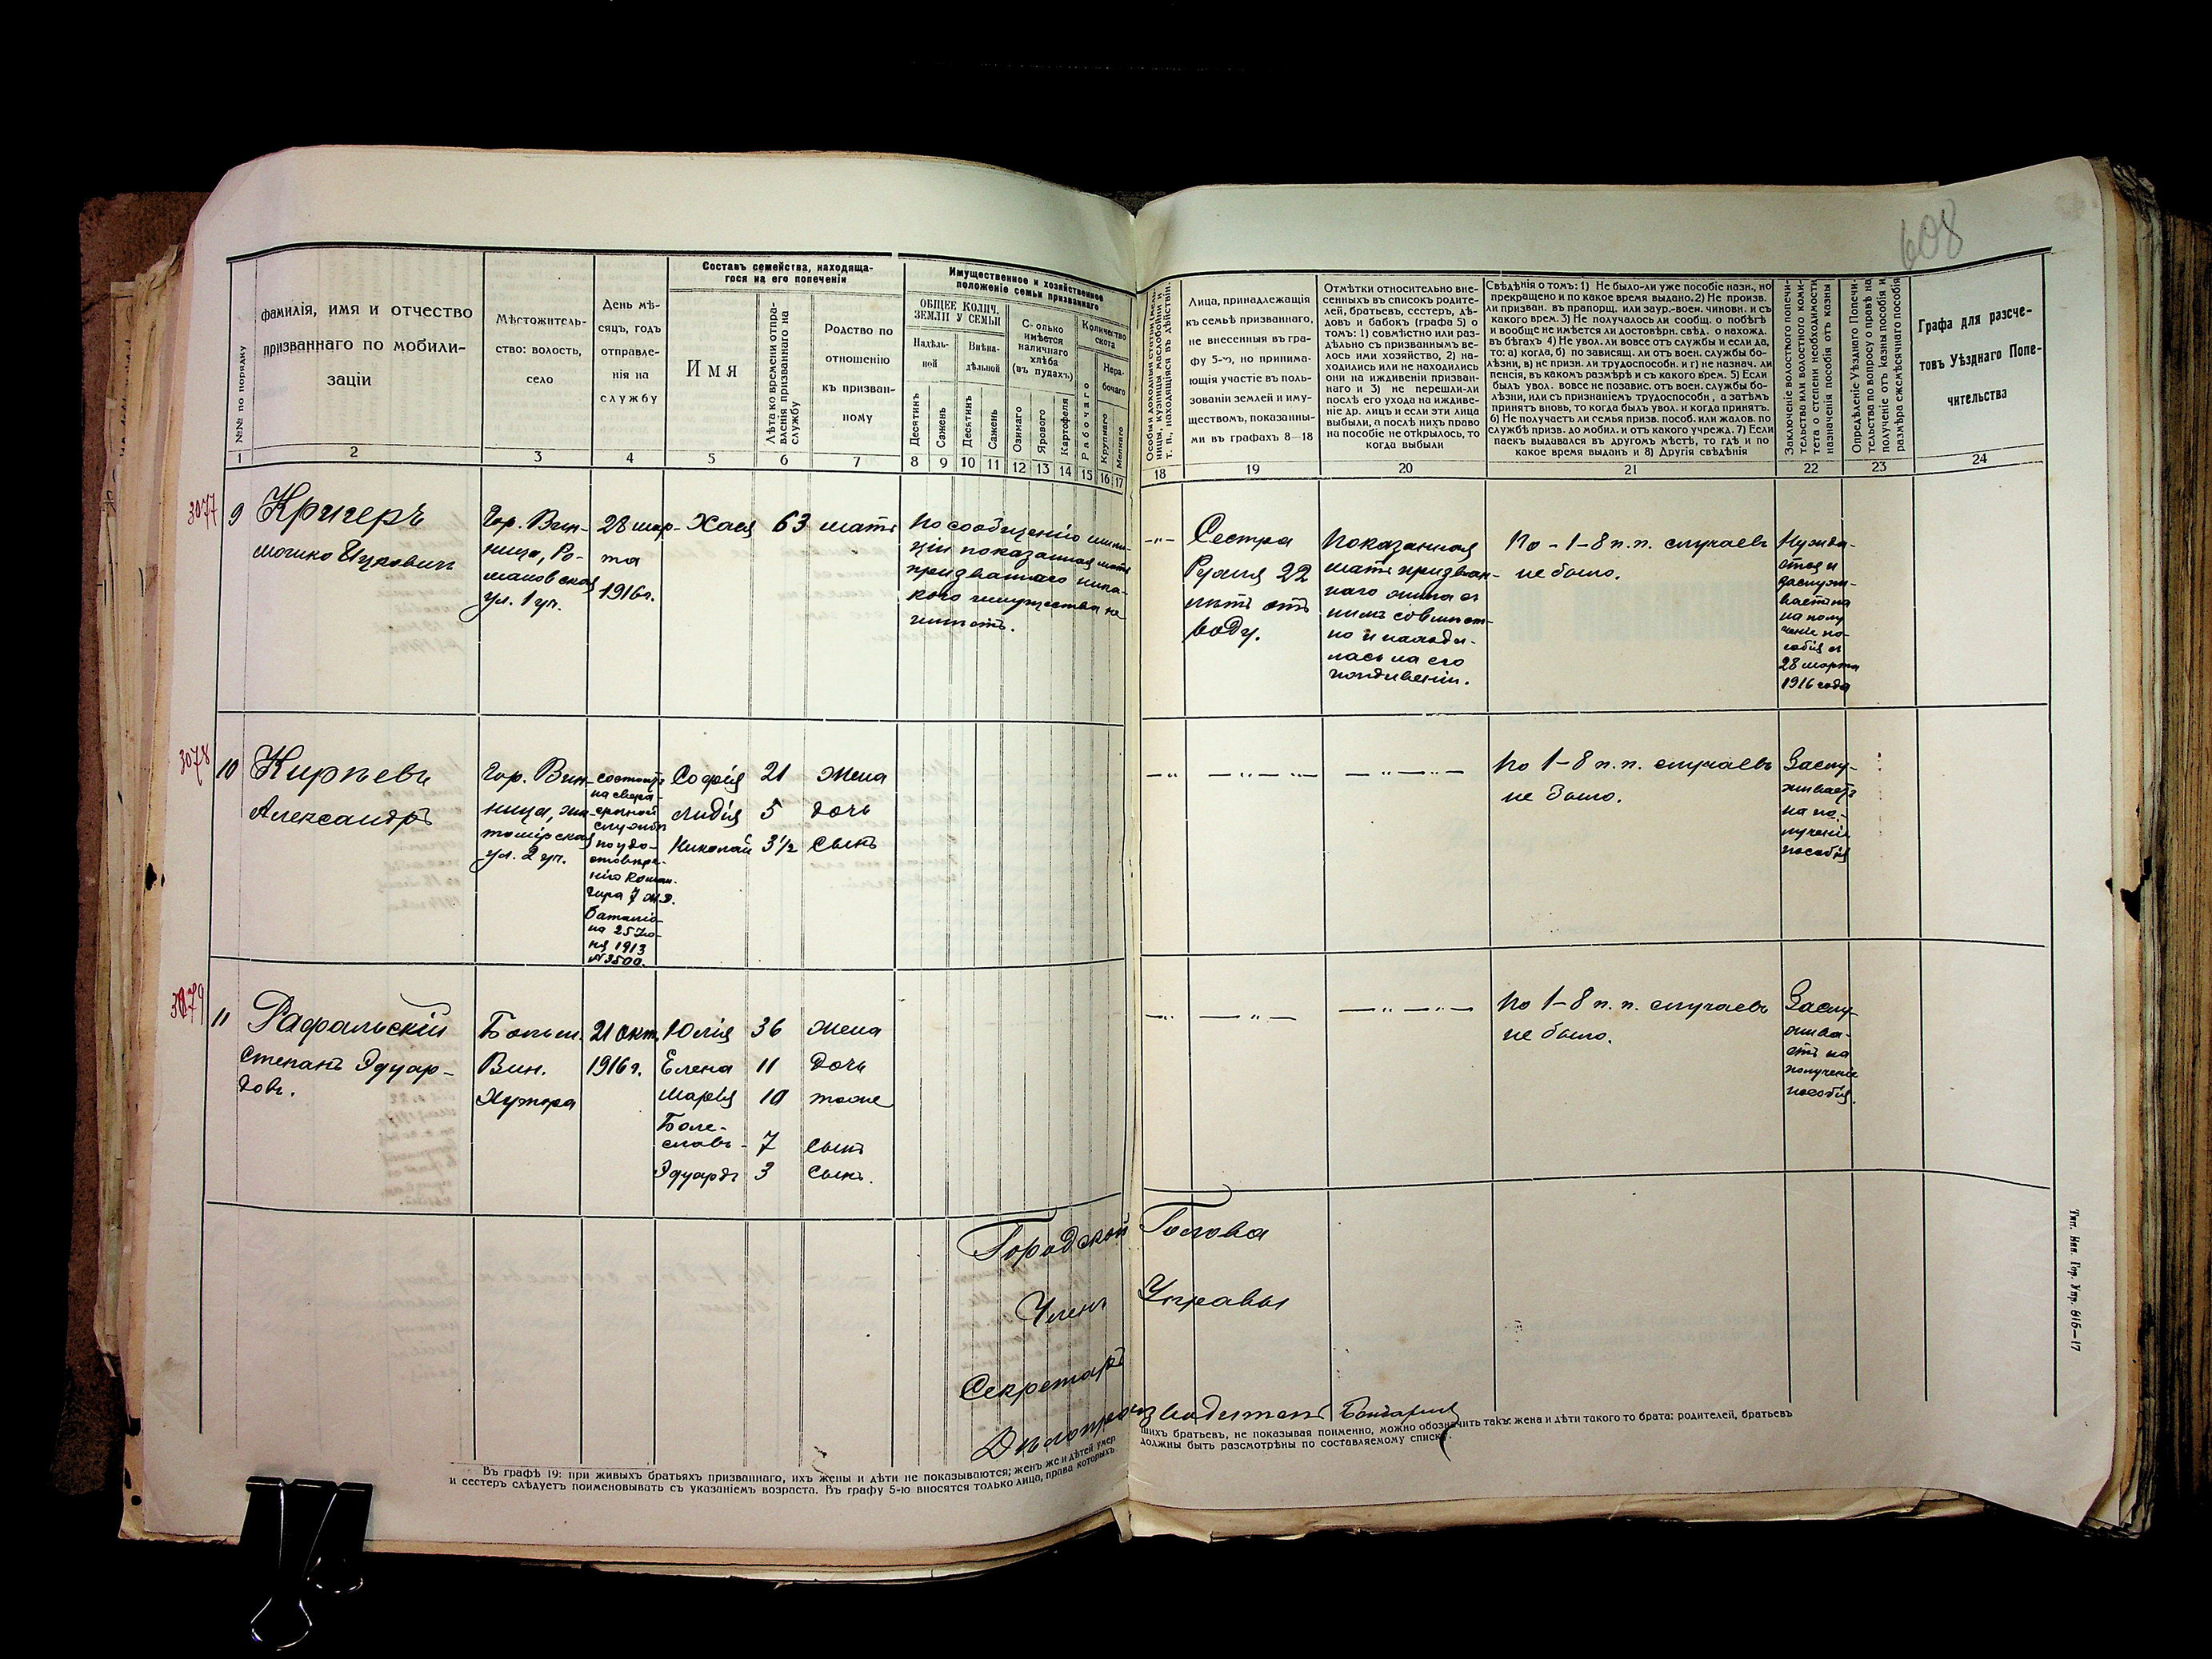 608
Составъ семейства, находяща-
гося на его попеченіи
Имущественное и хозяйственное
положеніе семьи призваннаго
№№ по порядку
фамилія, имя и отчество
призваннаго по мобили-
заціи
Мѣстожитель-
ство: волость,
село
День мѣ-
сяцъ, годъ
отправле-
нія на
службу
Имя
Лѣта ко времени отпра-
вленія призваннаго на
службу
Родство по
отношенію
къ призван-
ному
ОБЩЕЕ КОЛИЧ.
ЗЕМЛИ У СЕМЬИ
Надѣль-
ной
Внѣна-
дѣльной
Десятинъ
Сажень
Десятинъ
Сажень
Сколько
имѣется
наличнаго
хлѣба
(въ пудахъ)
Озимаго
Ярового
Картофеля
Количество
скота
Рабочаго
Нера-
бочаго
Крупнаго
Мелкаго
Лица, принадлежащія
къ семьѣ призваннаго,
не внесенныя въ гра-
фу 5-ю, но принима-
ющія участіе въ поль-
зованіи землей и иму-
ществомъ, показанны-
ми въ графахъ 8—18
Отмѣтки относительно вне-
сенныхъ въ списокъ родите-
лей, братьевъ, сестеръ, дѣ-
довъ и бабокъ (графа 5) о
томъ: 1) совмѣстно или раз-
дѣльно съ призваннымъ ве-
лось ими хозяйство, 2) на-
ходились или не находились
они на иждивеніи призван-
наго и 3) не перешли-ли
послѣ его ухода на иждиве-
ніе др. лицъ и если эти лица
выбыли, а послѣ нихъ право
на пособіе не открылось, то
когда выбыли
Свѣдѣнія о томъ: 1) Не было-ли уже пособіе назн., но
прекращено и по какое время выдано. 2) Не произв.
ли призван. въ прапорщ. или заур.-воен. чиновн. и съ
какого врем. 3) Не получалось ли сообщ. о побѣгѣ
и вообще не имѣется ли достовѣрн. свѣд. о нахожд.
въ бѣгахъ 4) Не увол. ли вовсе отъ службы и если да,
то: а) когда, б) по зависящ. ли отъ воен. службы бо-
лѣзни, в) не призн. ли трудоспособн. и г) не назнач. ли
пенсія, въ какомъ размѣрѣ и съ какого врем. 5) Если
былъ увол. вовсе не позавис. отъ воен. службы бо-
лѣзни, или съ признаніемъ трудоспособн., а затѣмъ
принятъ вновь, то когда былъ увол. и когда принятъ.
6) Не получаетъ ли семья призв. пособ. или жалов. по
службѣ призв. до мобил. и отъ какого учрежд. 7) Если
паекъ выдавался въ другомъ мѣстѣ, то гдѣ и по
какое время выданъ и 8) Другія свѣдѣнія
Заключеніе волостного попечи-
тельства или волостного коми-
тета о степени необходимости
назначенія пособія отъ казны
Опредѣленіе Уѣзднаго Попечи-
тельства по вопросу о правѣ на
полученіе отъ казны пособія и
размѣра ежемѣсячнаго пособія
Графа для разсче-
товъ Уѣзднаго Попе-
чительства
1 2 3 4 5 6 7 8 9 10 11 12 13 14 15 16 17 18 19 20 21 22 23 24
3077
9
Кригеръ
Мошко Ицкович
Гор. Вин-
ница, Ро-
мановская
ул. 1 уч.
28 мар-
та
1916г.
Хая 63 мать
По сообщенію мили-
ціи показанная мать
призваннаго ника-
кого имущества не
имѣетъ.
Сестра
Рухля 22
лѣтъ отъ
роду.
Показанная
мать призван-
наго жила съ
нимъ совмѣст-
но и находи-
лась на его
иждивеніи.
По - 1-8 п.п. случаевъ
не было.
Нужда-
ется и
заслужи-
ваетъ на
на полу
ченіе по-
собія съ
28 марта
1916 года
3078
10
Кирѣевъ
Александръ
Гор. Вин-
ница, Жи-
томірская
ул. 2 уч.
состоитъ
на сверх-
срочной
службѣ
по удо-
стовѣре-
нію Коман-
дира 7 Ж.Д.
Баталіо-
на 25 Iю-
ня 1913
№ 3500.
Софія 21 жена
Лидія 5 дочь
Николай 3½ сынъ
По 1-8 п.п. случаевъ
не было.
Заслу-
живаетъ
на по-
лученіе
пособія
3079
11
Рафальскій
Степанъ Эдуар-
довъ.
Больш.
Вин.
Хутора
21 окт.
1916г.
Юлія 36 жена
Елена 11 дочь
Марія 10 тоже
Боле-
славъ - 7 сынъ
Эдуардъ 3 сынъ.
По 1-8 п.п. случаевъ
не было.
Заслу-
жива-
етъ на
полученіе
пособія.
Городской Голова
Членъ Управы
Секретарь
Дѣлопроизводитель
Въ графѣ 19: при живыхъ братьяхъ призваннаго, ихъ жены и дѣти не показываются; женъ же и дѣтей умер
шихъ братьевъ, не показывая поименно, можно обозначить такъ: жена и дѣти такого то брата: родителей, братьевъ
и сестеръ слѣдуетъ поименовывать съ указаніемъ возраста. Въ графу 5-ю вносятся только лица, права которыхъ
должны быть разсмотрѣны по составляемому списку.